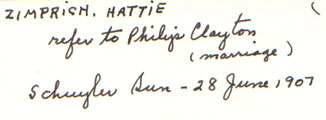 ZIMPRICH, HATTIE
refer to Philip Clayton
(marriage)
Schuyler Sun - 28 June, 1907